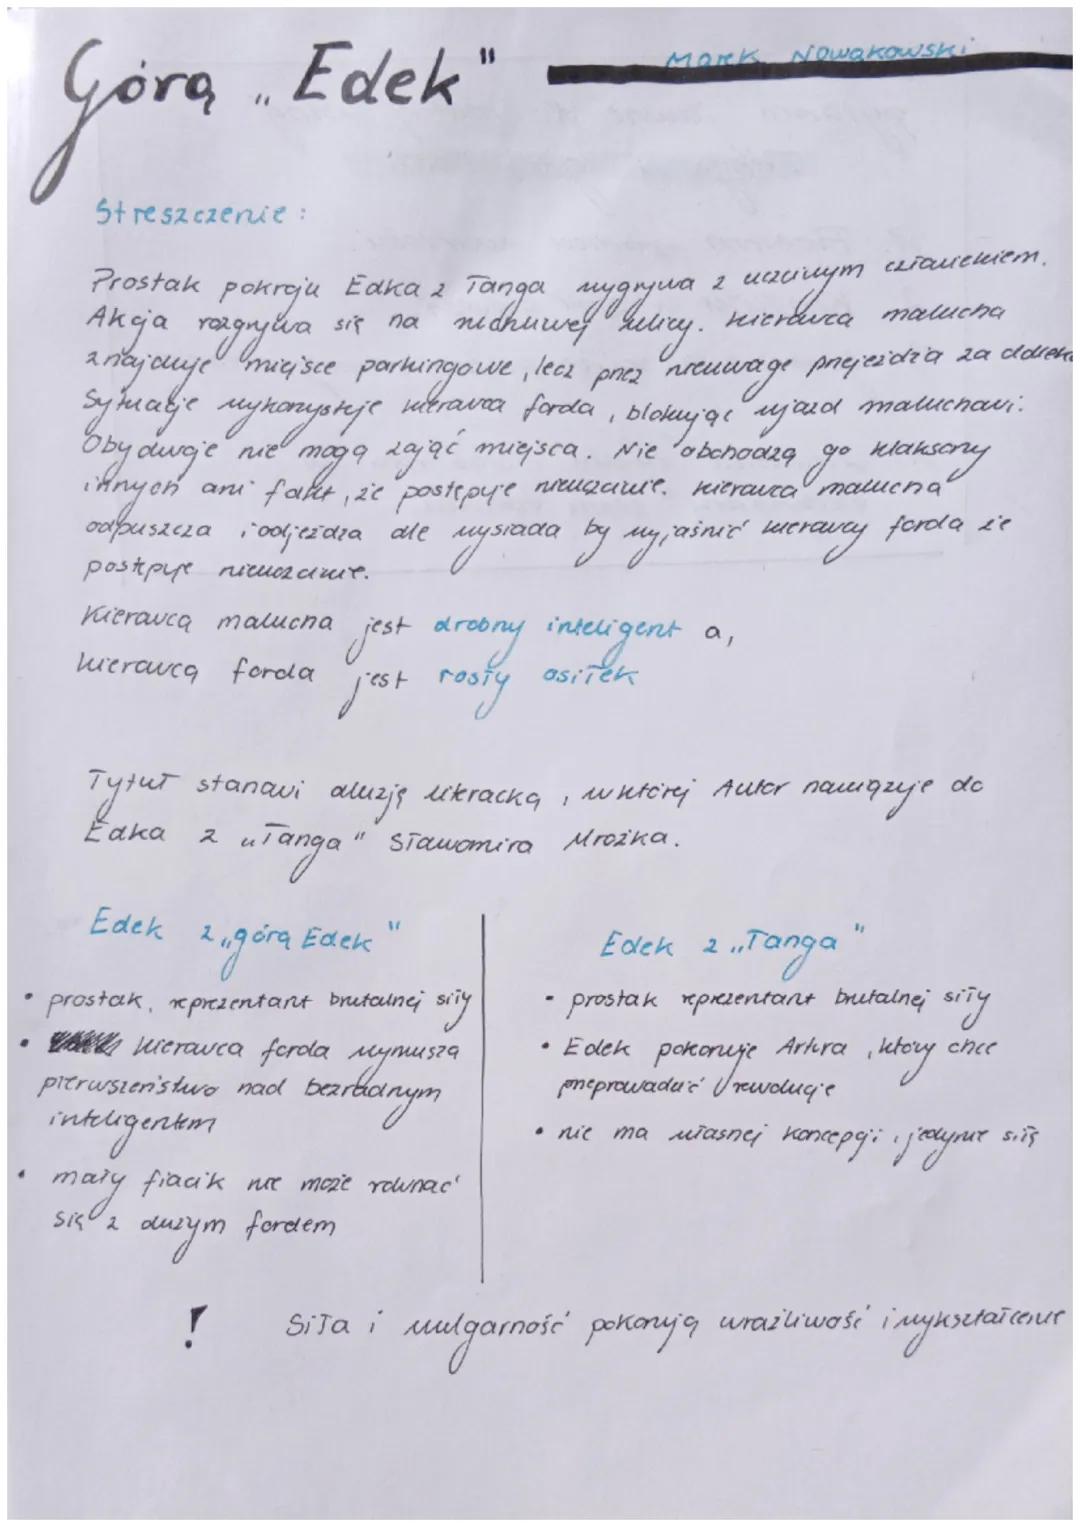 Górą „Edek"
Marek Nowakowski
Streszczenie:
Prostak pokroju Edka z Tanga wygrywa z uczciwym człowiekiem.
Akcja rozgrywa się na ruchliwej ulicy. Kierowca malucha
znajduje miejsce parkingowe, lecz przez nieuwagę przejeżdża za daleko
Sytuację wykorzystuje kierowca forda, blokując wjazd maluchowi.
Obydwoje nie mogą zająć miejsca. Nie obchodzą go klaksony
innych ani fakt, że postępuje nieuczciwie. Kierowca malucha
odpuszcza i odjeżdża ale wysiada by wyjaśnić kierowcy forda że
postępuje nieuczciwie.
Kierowcą malucha jest drobny inteligent a,
kierowcą forda jest rosły osiłek
Tytuł stanowi aluzję literacką, w której Autor nawiązuje do
Edka z „Tanga" Sławomira Mrożka.
Edek z „górą Edek"
• prostak, reprezentant brutalnej siły
• kierowca forda wymusza
pierwszeństwo nad bezradnym
inteligentem
• mały fiacik nie może równać
się z dużym fordem
Edek z „Tanga"
• prostak reprezentant brutalnej siły
• Edek pokonuje Artura, który chce
przeprowadzić rewolucje
• nie ma własnej koncepcji, jedynie siłę
! Siła i wulgarność pokonują wrażliwość i wykształcenie